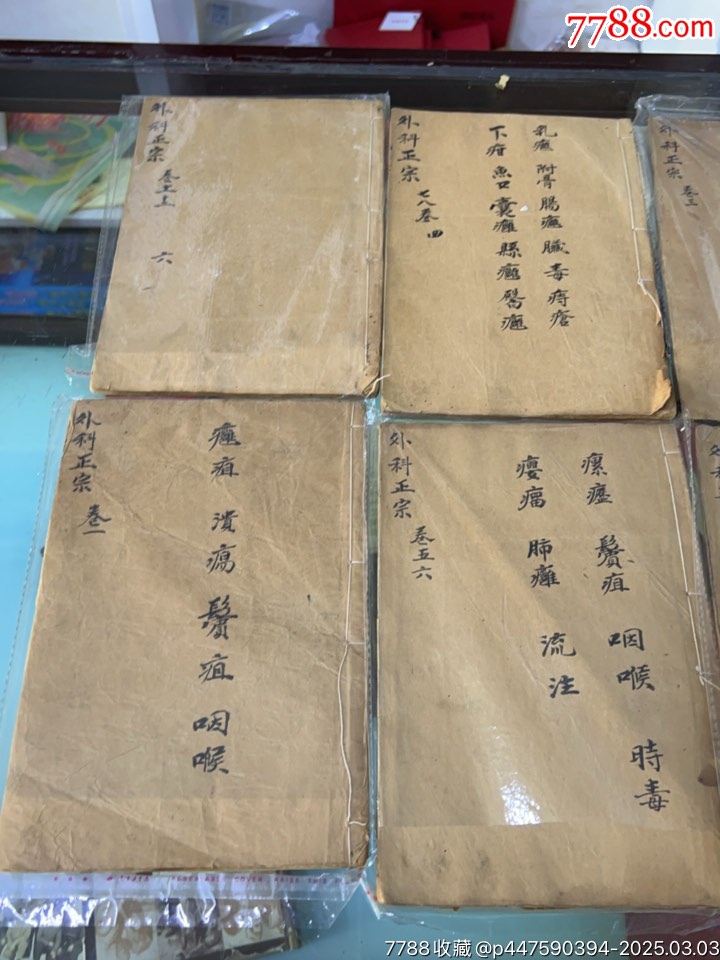 7788.com
外科正宗
六
乳癰 附骨 腸癰 臟毒 痔瘡
下疳 魚口 囊癰 懸癰 臀癰
外科正宗
七八卷 四
外科正宗 卷三
癰疽 潰瘍 鬢疽 咽喉
外科正宗 卷一
瘰癧 鬢疽 咽喉 時毒
癭瘤 肺癰 流注
外科正宗 卷五六
7788收藏@p447590394-2025.03.03